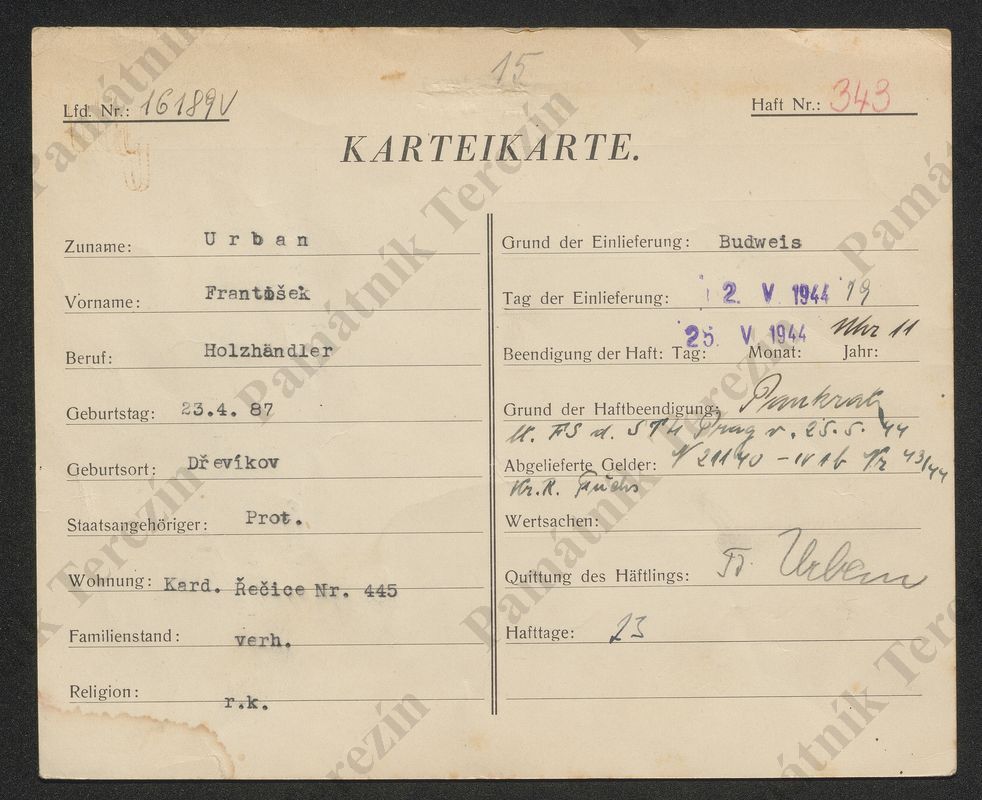 15
Lfd. Nr.: 16189V
Haft Nr.: 343
KARTEIKARTE.
Zuname: Urban
Vorname: František
Beruf: Holzhändler
Geburtstag: 23.4. 87
Geburtsort: Dřevíkov
Staatsangehöriger: Prot.
Wohnung: Kard. Řečice Nr. 445
Familienstand: verh.
Religion: r.k.
Grund der Einlieferung: Budweis
Tag der Einlieferung: 2. V. 1944 19
25. V. 1944 Uhr 11
Beendigung der Haft: Tag: Monat: Jahr:
Grund der Haftbeendigung: Pankratz
lt. FS d. STL Prag v. 25.5. 44
Abgelieferte Gelder: N 21140 - IV 1b Nr 43/44
Kr.K. Fuchs
Wertsachen:
Quittung des Häftlings: Fr. Urban
Hafttage: 23
Památník Terezín